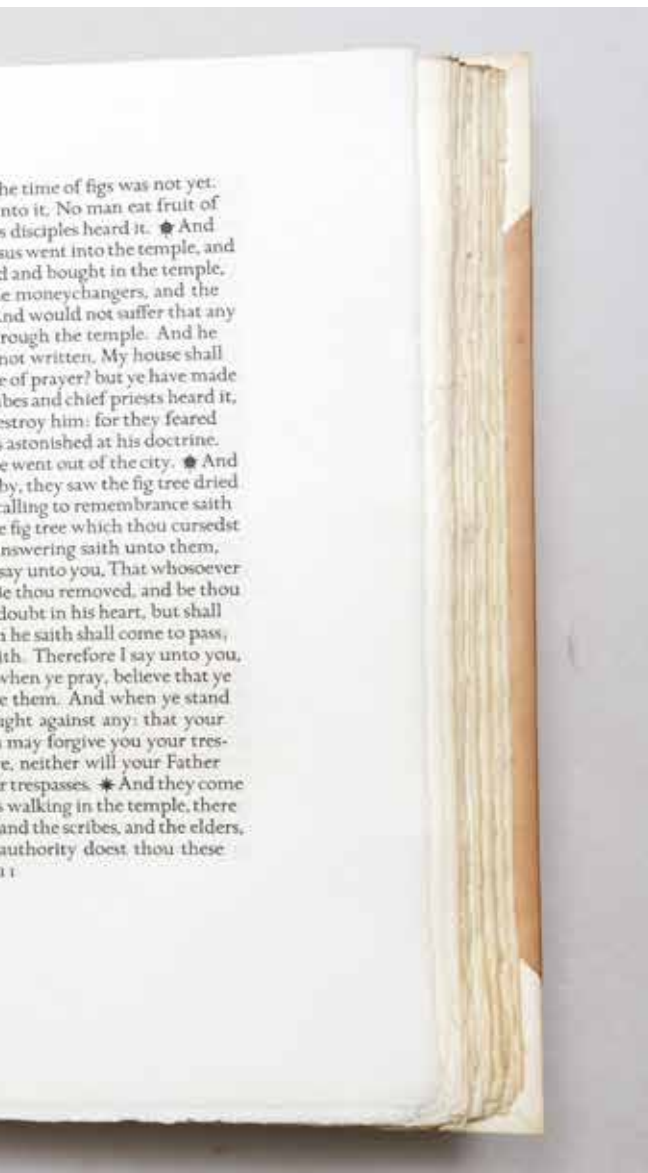 he time of figs was not yet.
nto it, No man eat fruit of
s disciples heard it. ✹ And
sus went into the temple, and
d and bought in the temple,
e moneychangers, and the
And would not suffer that any
rough the temple. And he
not written, My house shall
e of prayer? but ye have made
ibes and chief priests heard it,
estroy him: for they feared
s astonished at his doctrine.
e went out of the city. ✹ And
by, they saw the fig tree dried
calling to remembrance saith
e fig tree which thou cursedst
nswering saith unto them,
say unto you, That whosoever
e thou removed, and be thou
doubt in his heart, but shall
h he saith shall come to pass,
ith. Therefore I say unto you,
when ye pray, believe that ye
e them. And when ye stand
ught against any: that your
may forgive you your tres-
e, neither will your Father
r trespasses. ✷ And they come
s walking in the temple, there
and the scribes, and the elders,
authority doest thou these